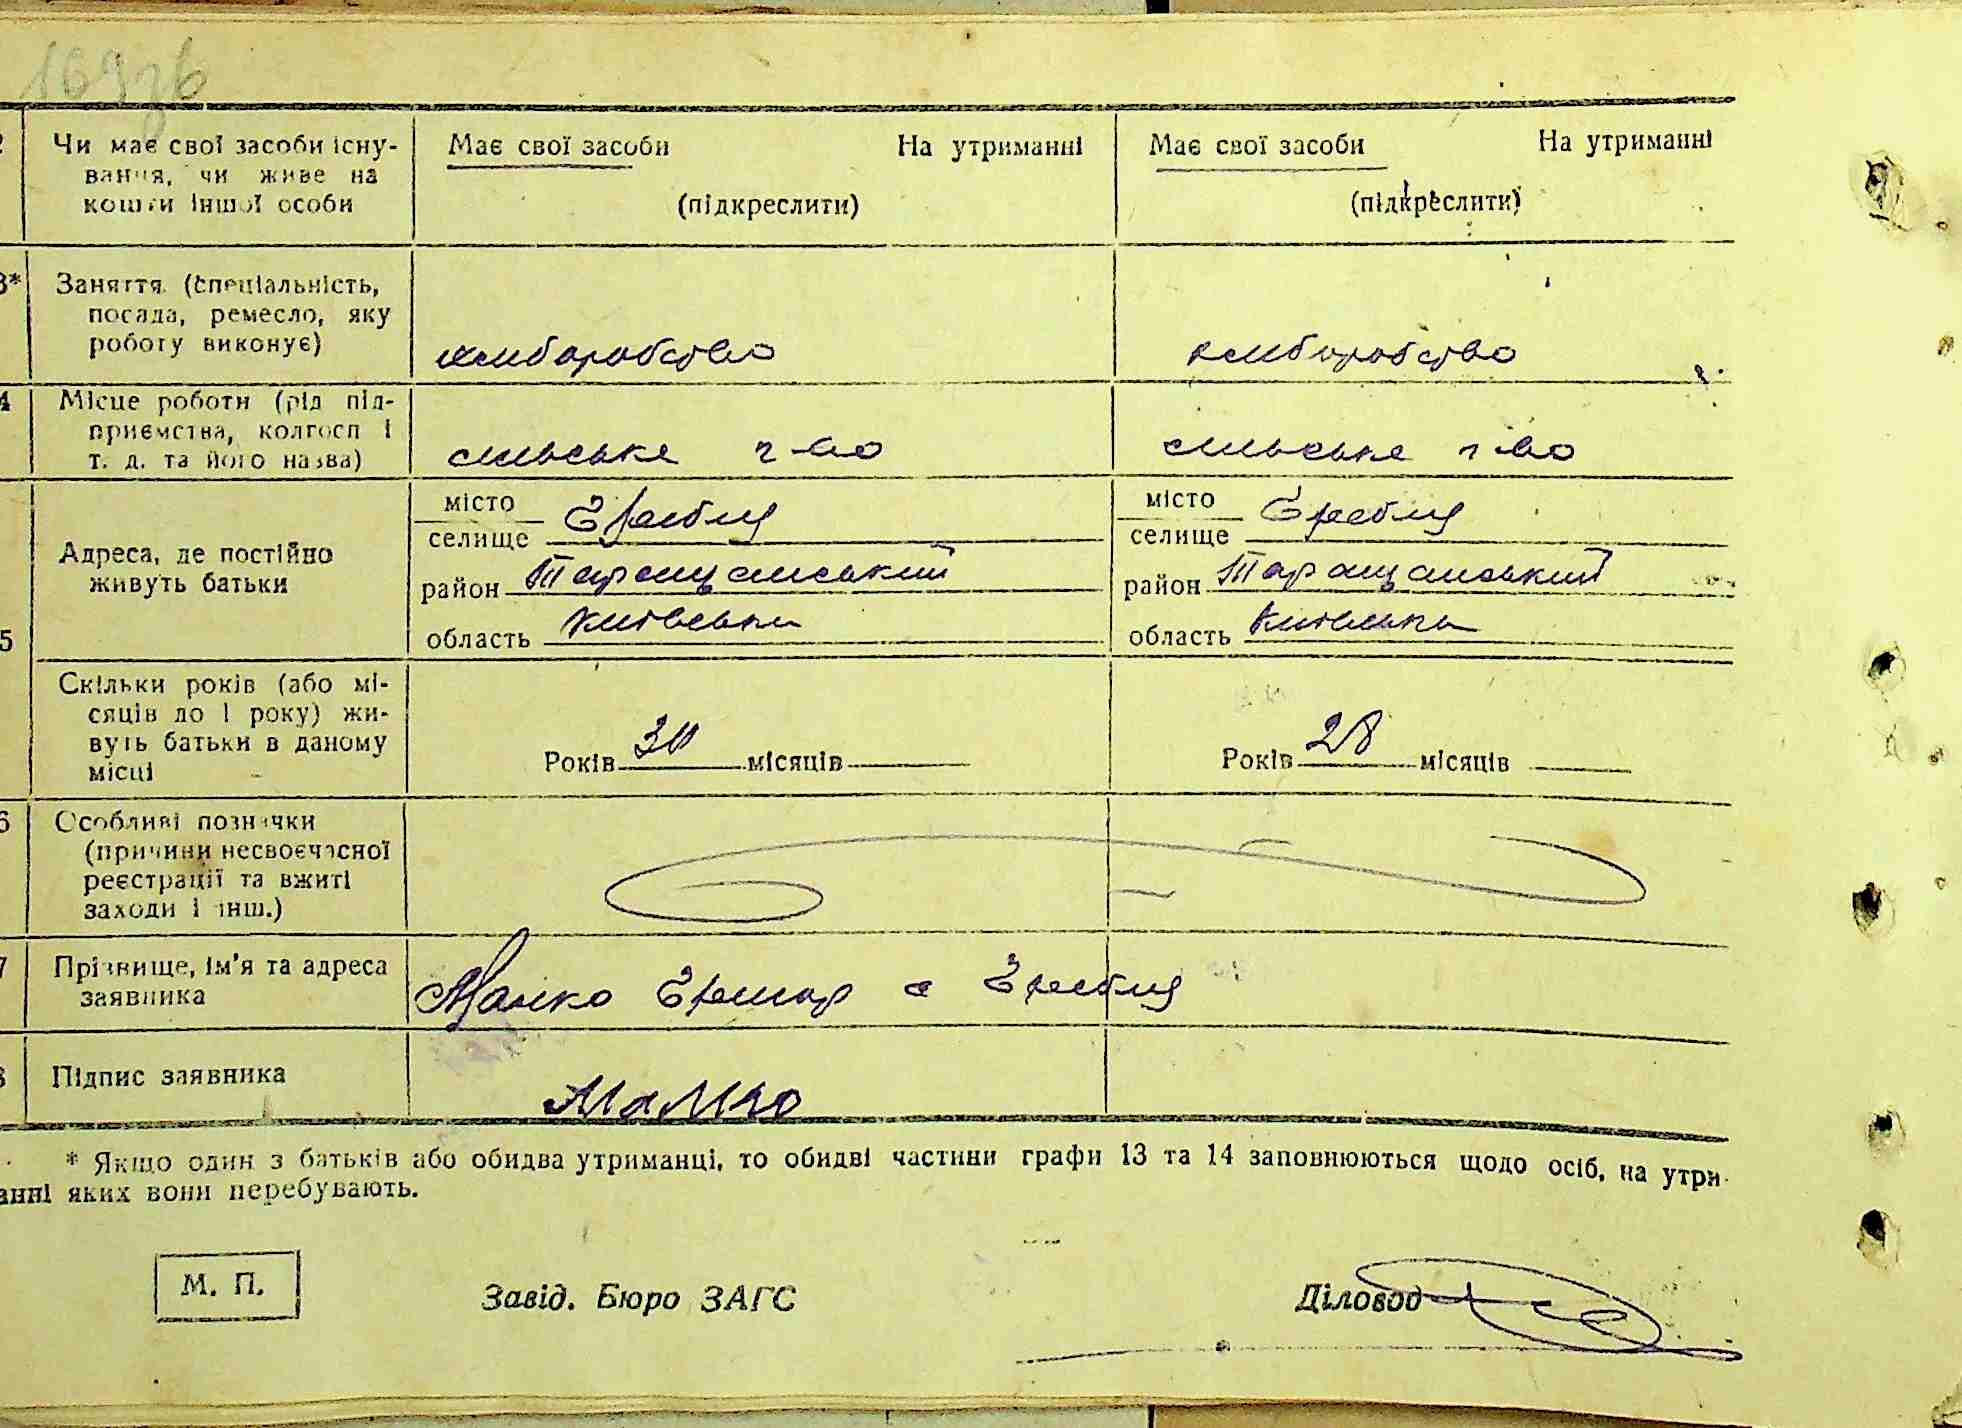 169зв
2 Чи має свої засоби існу-
вання, чи живе на
кошти іншої особи
Має свої засоби На утриманні
(підкреслити)
Має свої засоби На утриманні
(підкреслити)
3* Заняття (спеціальність,
посада, ремесло, яку
роботу виконує)
хліборобство
хліборобство
4 Місце роботи (рід під-
приємства, колгосп і
т. д. та його назва)
сильське г-во
сильське г-во
5 Адреса, де постійно
живуть батьки
місто
селище Гребля
район Таращанський
область Київська
місто
селище Гребля
район Таращанський
область Київська
Скільки років (або мі-
сяців до 1 року) жи-
вуть батьки в даному
місці
Років 30 місяців
Років 28 місяців
6 Особливі позначки
(причини несвоєчасної
реєстрації та вжиті
заходи і інш.)
7 Прізвище, ім'я та адреса
заявника
Малко Гр с Гребля
8 Підпис заявника
Малко
* Якщо один з батьків або обидва утриманці, то обидві частини графи 13 та 14 заповнюються щодо осіб, на утри-
анні яких вони перебувають.
М. П.
Завід. Бюро ЗАГС
Діловод